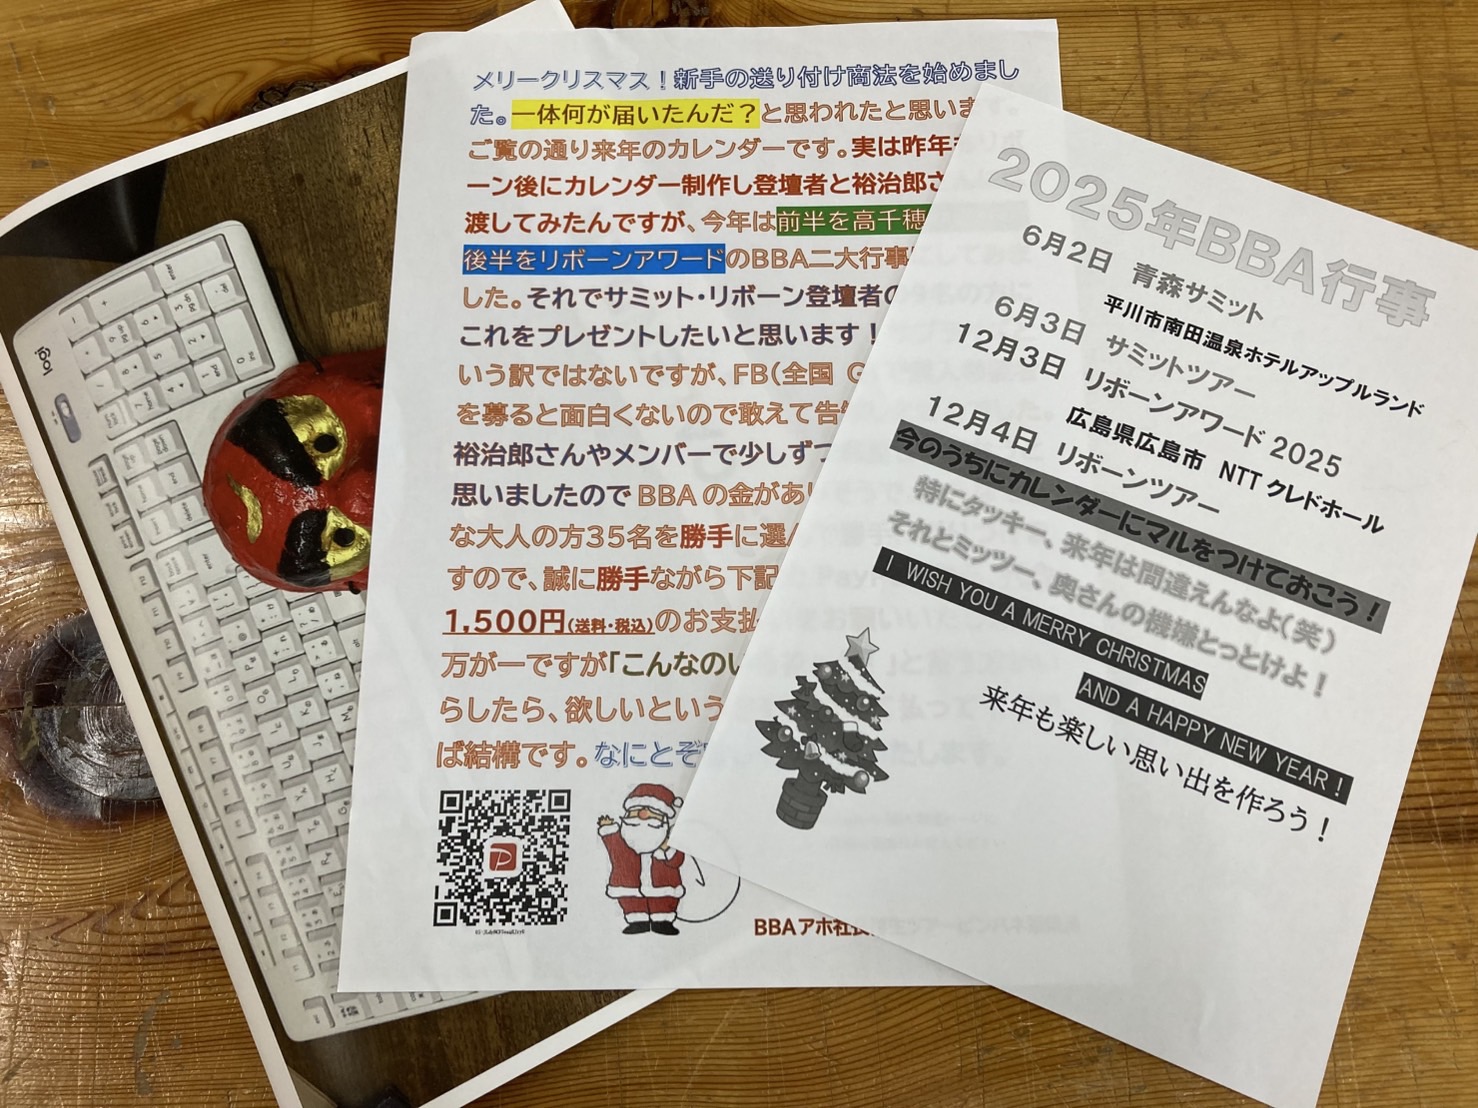 メリークリスマス！新手の送り付け商法を始めまし
た。一体何が届いたんだ？と思われたと思います。
ご覧の通り来年のカレンダーです。実は昨年
ーン後にカレンダー制作し登壇者と裕治郎さ
渡してみたんですが、今年は前半を高千穂
後半をリボーンアワードのBBA二大行事
した。それでサミット・リボーン登壇者の
これをプレゼントしたいと思います！
いう訳ではないですが、FB(全国 G
を募ると面白くないので敢えて告
裕治郎さんやメンバーで少しずつ
思いましたのでBBAの金があ
な大人の方35名を勝手に選
すので、誠に勝手ながら下記 Pay
1,500円(送料・税込)のお支払
万が一ですが「こんなのい
らしたら、欲しいという
ば結構です。なにとぞ たします。
BBAアホ社長
2025年BBA行事
6月2日 青森サミット
平川市南田温泉ホテルアップルランド
6月3日 サミットツアー
12月3日 リボーンアワード2025
広島県広島市 NTTクレドホール
12月4日 リボーンツアー
今のうちにカレンダーにマルをつけておこう！
特にタッキー、来年は間違えんなよ(笑)
それとミッツー、奥さんの機嫌とっとけよ！
I WISH YOU A MERRY CHRISTMAS
AND A HAPPY NEW YEAR！
来年も楽しい思い出を作ろう！